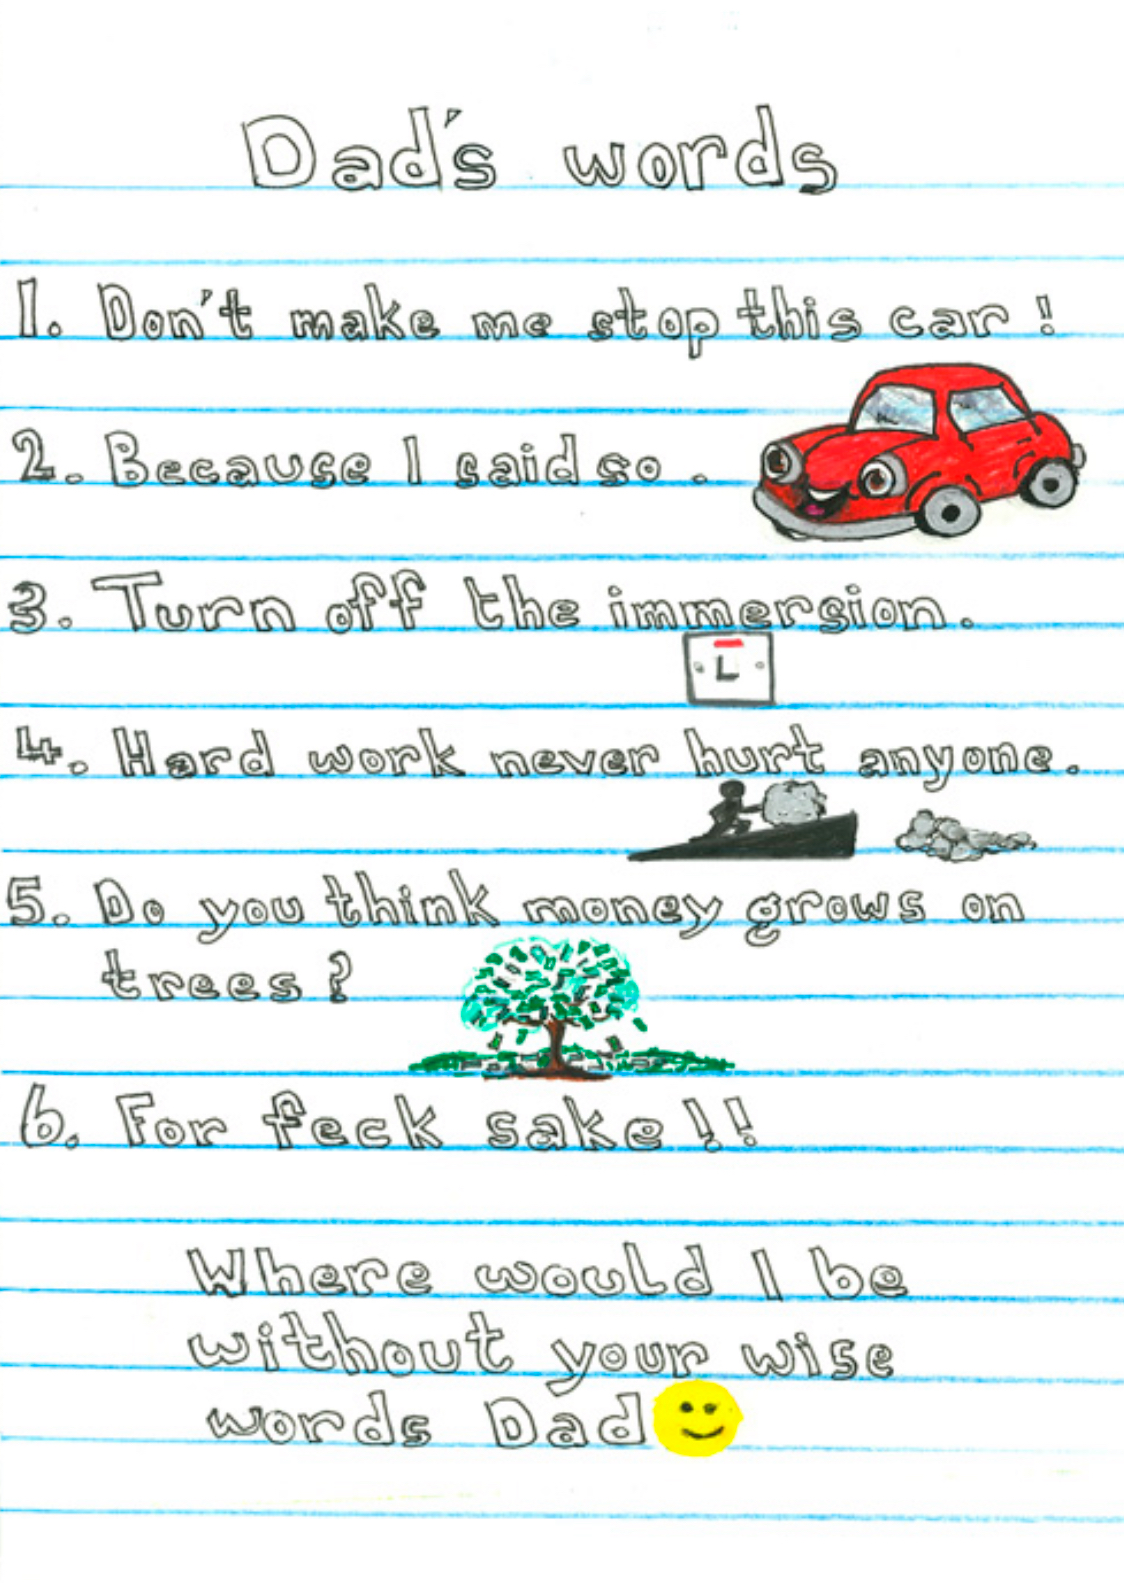 Dad's words
1. Don't make me stop this car!
2. Because I said so.
3. Turn off the immersion.
4. Hard work never hurt anyone.
5. Do you think money grows on
trees?
6. For feck sake!!
Where would I be
without your wise
words Dad